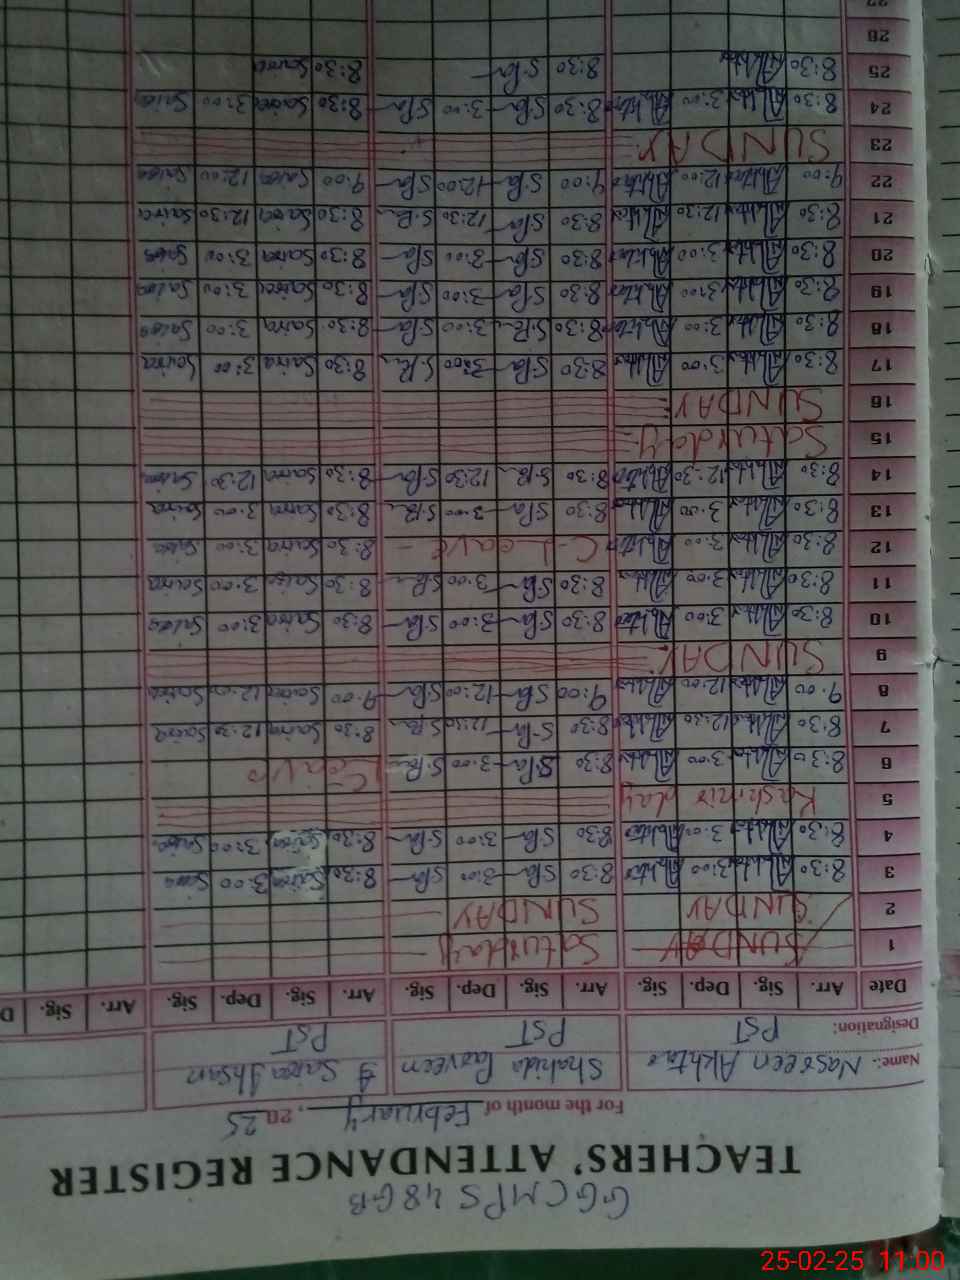 GGCMPS 48GB
TEACHERS' ATTENDANCE REGISTER
For the month of February, 2025
Name: Nasreen Akhtar Shahida Parveen Saira Ihsan
Designation: PST PST PST
Date Arr. Sig. Dep. Sig. Arr. Sig. Dep. Sig. Arr. Sig. Dep. Sig. Arr. Sig. D
1 SUNDAY Saturday
2 SUNDAY SUNDAY
3 8:30 Akhtar 3:00 Akhtar 8:30 3:00 8:30 Saira 3:00 Saira
4 8:30 Akhtar 3:00 Akhtar 8:30 3:00 8:30 Saira 3:00 Saira
5 Kashmir day
6 8:30 Akhtar 3:00 Akhtar 8:30 3:00 Leave
7 8:30 Akhtar 12:30 Akhtar 8:30 12:30 8:30 Saira 12:30 Saira
8 9:00 Akhtar 12:00 Akhtar 9:00 12:00 9:00 Saira 12:00 Saira
9 SUNDAY
10 8:30 Akhtar 3:00 Akhtar 8:30 3:00 8:30 Saira 3:00 Saira
11 8:30 Akhtar 3:00 Akhtar 8:30 3:00 8:30 Saira 3:00 Saira
12 8:30 Akhtar 3:00 Akhtar C-Leave 8:30 Saira 3:00 Saira
13 8:30 Akhtar 3:00 Akhtar 8:30 3:00 8:30 Saira 3:00 Saira
14 8:30 Akhtar 12:30 Akhtar 8:30 12:30 8:30 Saira 12:30 Saira
15 Saturday
16 SUNDAY
17 8:30 Akhtar 3:00 Akhtar 8:30 3:00 8:30 Saira 3:00 Saira
18 8:30 Akhtar 3:00 Akhtar 8:30 3:00 8:30 Saira 3:00 Saira
19 8:30 Akhtar 3:00 Akhtar 8:30 3:00 8:30 Saira 3:00 Saira
20 8:30 Akhtar 3:00 Akhtar 8:30 3:00 8:30 Saira 3:00 Saira
21 8:30 Akhtar 12:30 Akhtar 8:30 12:30 8:30 Saira 12:30 Saira
22 9:00 Akhtar 12:00 Akhtar 9:00 12:00 9:00 Saira 12:00 Saira
23 SUNDAY
24 8:30 Akhtar 3:00 Akhtar 8:30 3:00 8:30 Saira 3:00 Saira
25 8:30 Akhtar 8:30 8:30 Saira
26
27
25-02-25 11:00